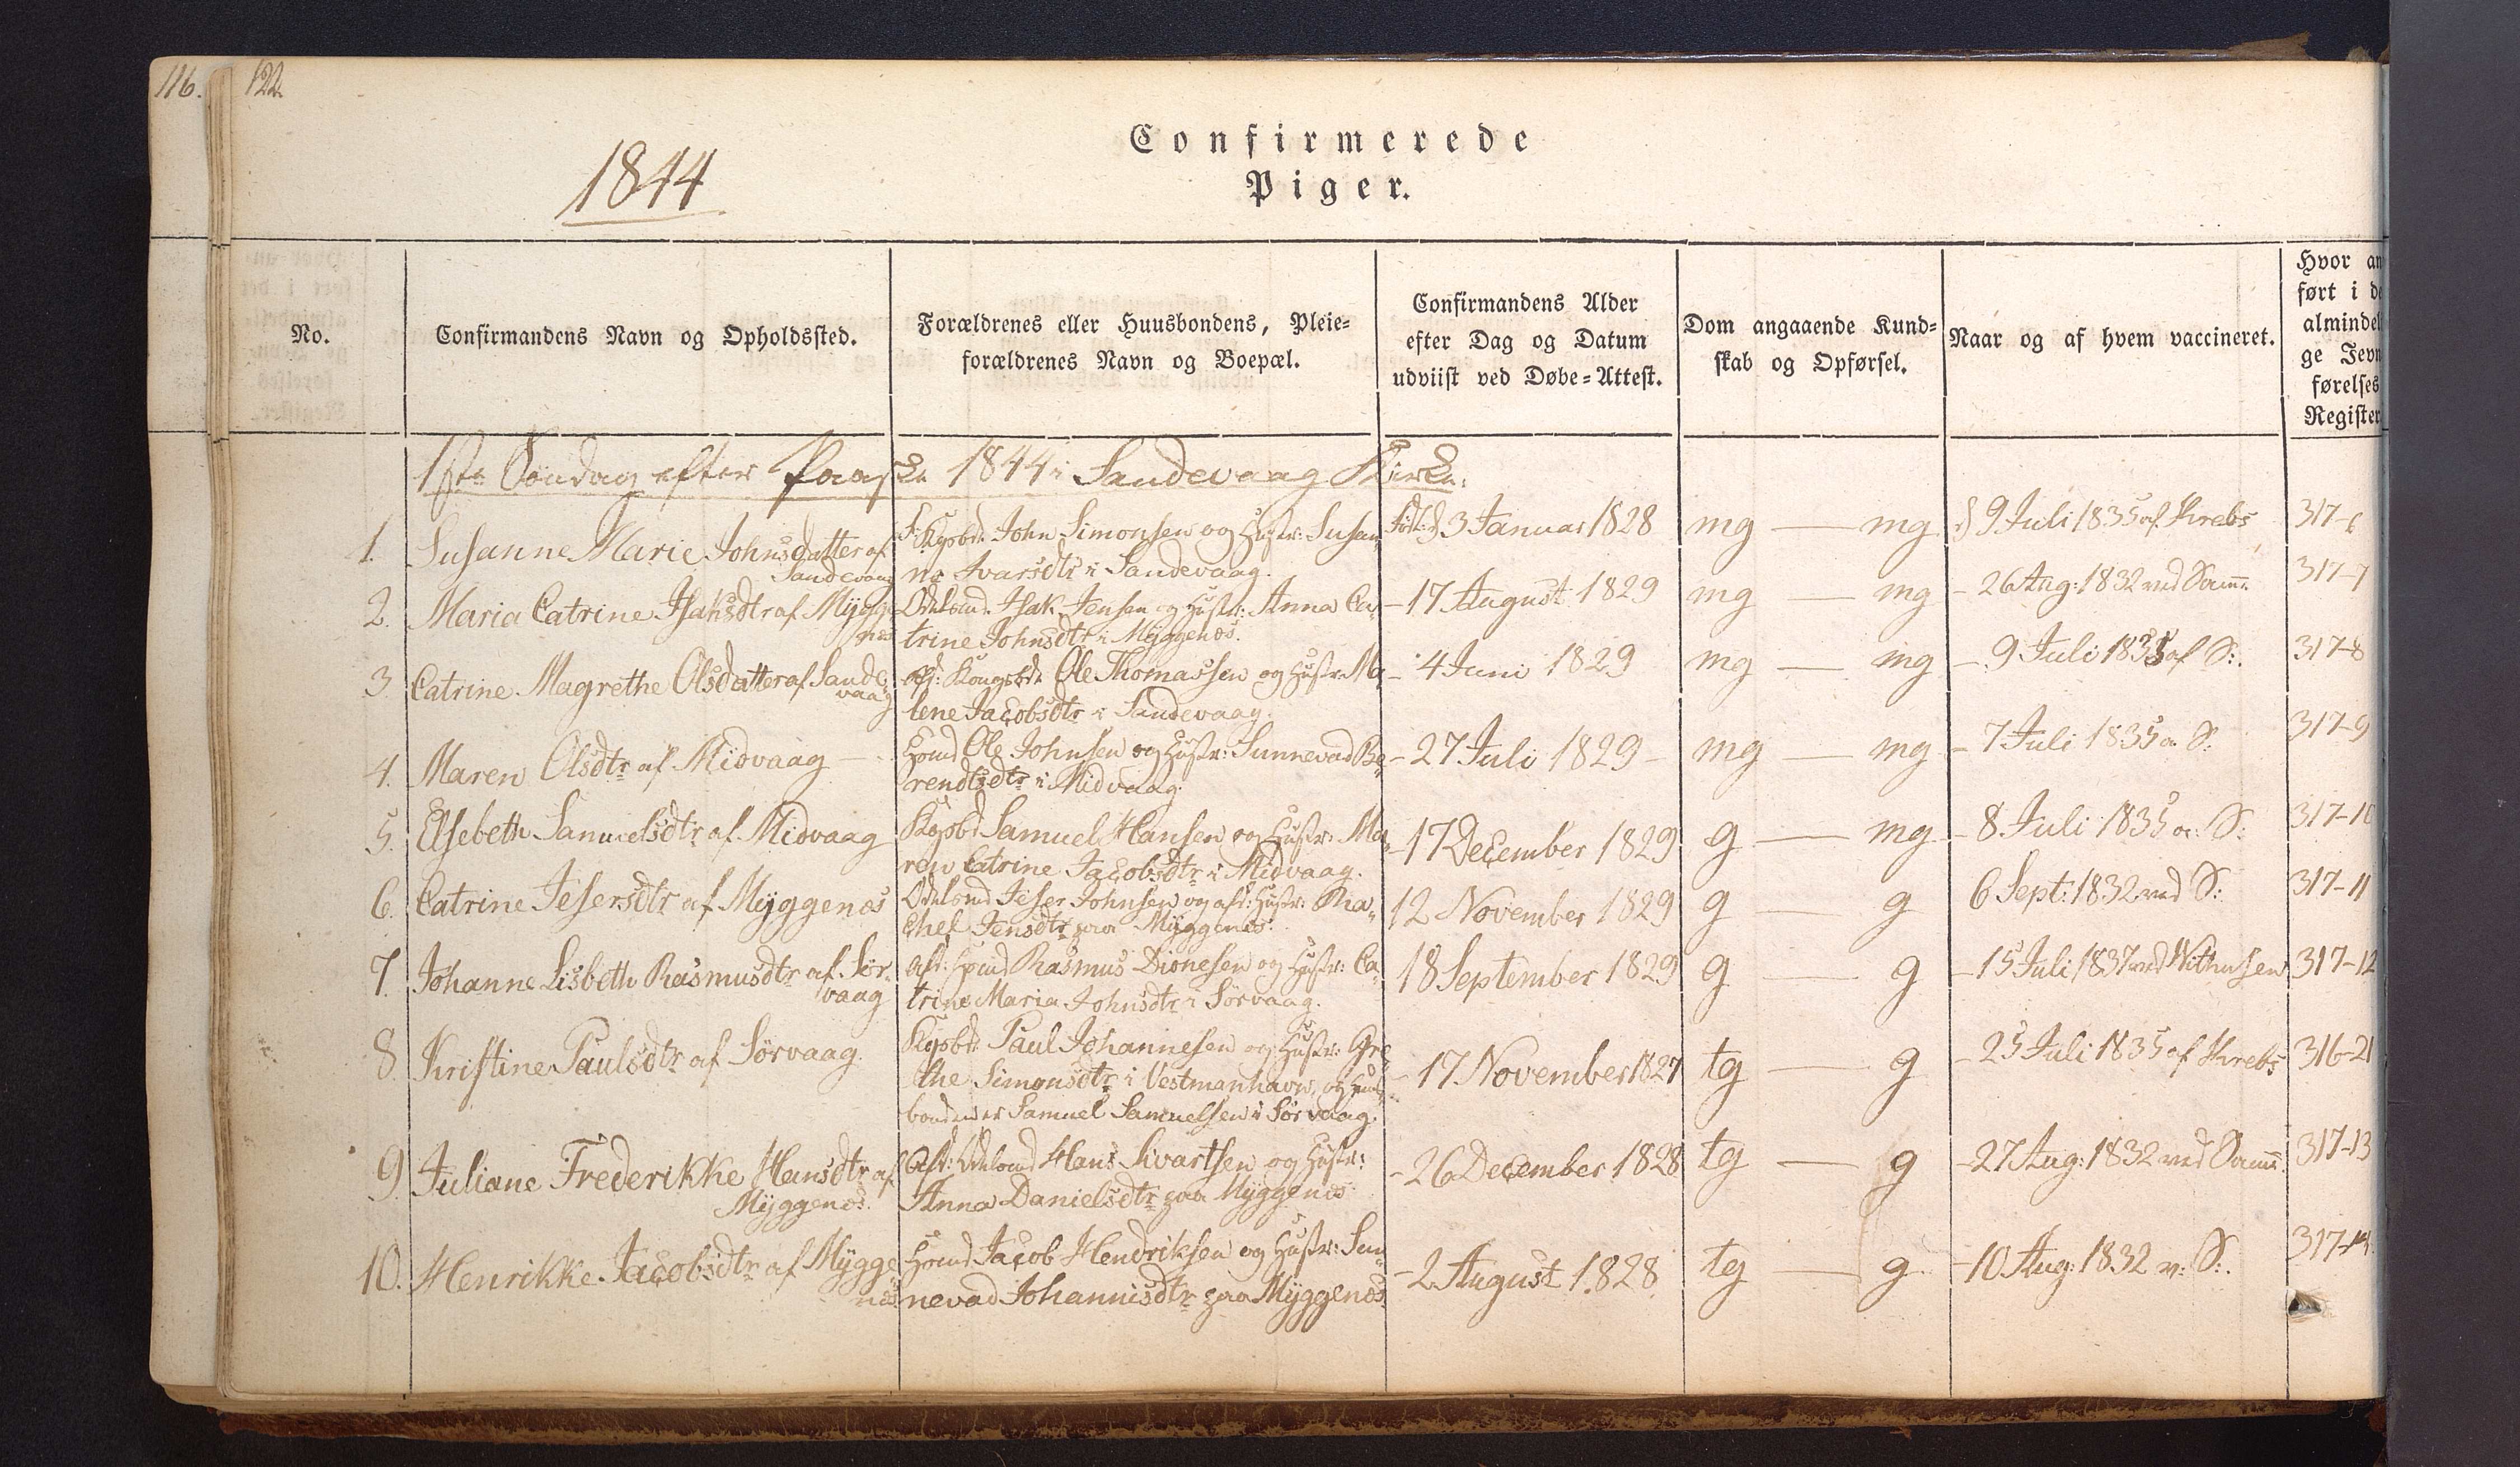 116. 122.
1844
Confirmerede
Piger.
No.
Confirmandens Navn og Opholdssted.
Forældrenes eller Huusbondens, Pleie=
forældrenes Navn og Boepæl.
Confirmandens Alder
efter Dag og Datum
udviist ved Døbe=Attest.
Dom angaaende Kund=
skab og Opførsel.
Naar og af hvem vaccineret.
Hvor an
ført i de
almindel
ge Jevn
førelses
Register
1ste Søndag efter Paaske 1844 i Sandevaag Kirke.
1. Susanne Marie Johnsdatter af
Sandevaag
Kgsbd. John Simonsen og Hustr: Susan„
ne Ivarsdtr i Sandevaag.
Født d 3 Januar 1828
mg — mg
d 9 Juli 1835 af Krebs
317-6
2. Maria Catrine Isaksdtr af Mygge
nes
Odelsmd. Isak Jensen og Hustr: Anna Ca„
trine Johnsdtr i Myggenæs.
- 17 August 1829
mg — mg
- 26 Aug: 1832 ved Samme
317-7
3. Catrine Magrethe Olsdatter af Sande
vaag
afd: Kongsbd. Ole Thomassen og Hustr Ma„
lene Jacobsdtr i Sandevaag.
- 4 Juni 1829
mg — mg
- 9 Juli 1835 af S:.
317-8
4. Maren Olsdtr af Midvaag —
Hmd Ole Johnsen og Hustr: Sunnevad Be„
rendtsdtr i Midvaag.
- 27 Juli 1829 -
mg — mg
- 7 Juli 1835 a S:
317-9
5. Elsebeth Samuelsdtr af Midvaag
Kgsbd Samuel Hansen og Hustr: Ma„
ren Catrine Jacobsdtr i Midvaag.
- 17 December 1829
g — mg
- 8 Juli 1835 a: S:
317-10
6. Catrine Jesersdtr af Myggenæs
Odelsmd Jeser Johnsen og afd: Hustr: Ra„
chel Jensdtr paa Myggenæs.
12 November 1829
g — g
6 Sept: 1832 ved S:
317-11
7. Johanne Lisbeth Rasmusdtr af Sør„
vaag
Afd: Hmd Rasmus Dionesen og Hustr: Ca„
trine Maria Johnsdtr i Sørvaag.
18 September 1829
g — g
- 15 Juli 1837 ved Withusen
317-12
8. Kristine Paulsdtr af Sørvaag.
Kgsbd. Paul Johannesen og Hustr: Gre„
the Simonsdtr i Vestmanhavn, og Huus„
bonden er Samuel Samuelsen i Sørvaag.
- 17 November 1827
tg — g
- 25 Juli 1835 af Krebs
316-21
9. Juliane Frederikke Hansdtr af
Myggenæs.
Afd: Odelsmd Hans Sivartsen og Hustr:
Anna Danielsdtr paa Myggenæs
- 26 December 1828
tg — g
- 27 Aug: 1832 ved Samme.
317-13
10. Henrikke Jacobsdtr af Mygge
næs
Hmd Jacob Hendriksen og Hustr: Sun„
nevad Johannisdtr paa Myggenæs.
- 2 August 1828
tg — g
- 10 Aug: 1832 v: S:.
317-14